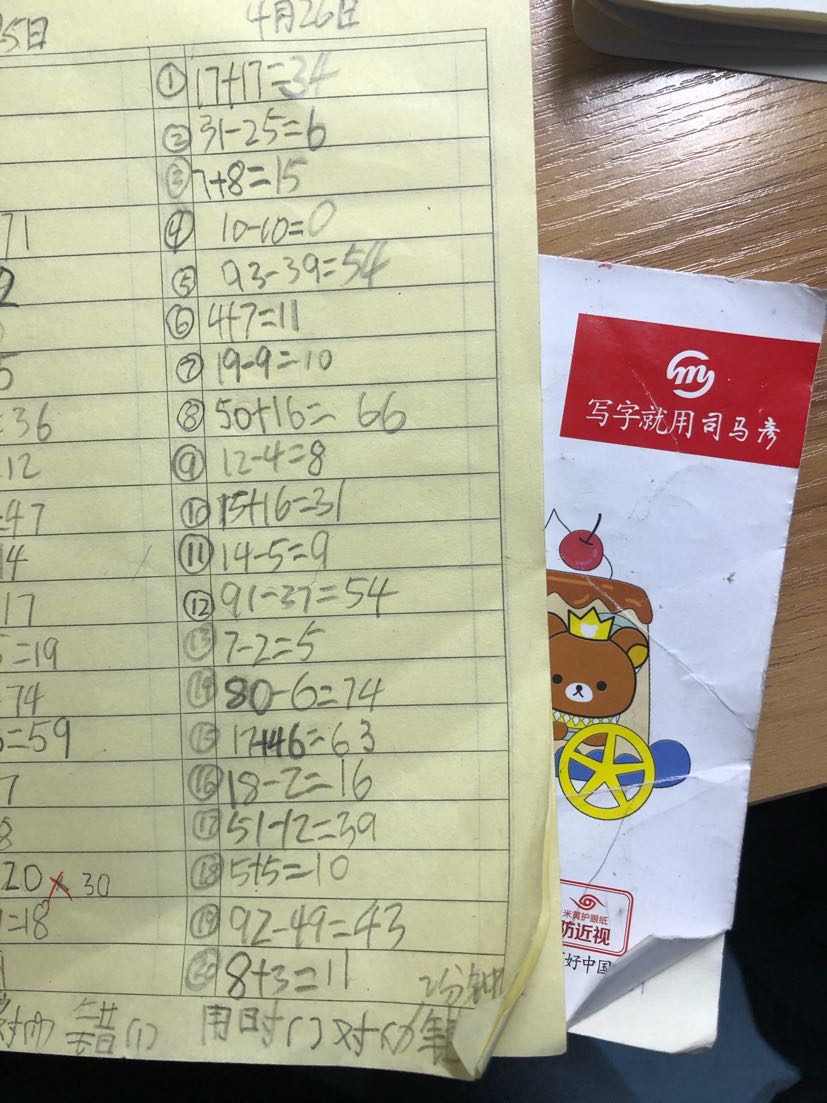 5日
4月26日
① 17+17=34
② 31-25=6
③ 7+8=15
71
④ 10-10=0
2
⑤ 93-39=54
⑥ 4+7=11
5
⑦ 19-9=10
=36
⑧ 50+16=66
12
⑨ 12-4=8
=47
⑩ 15+16=31
14
⑪ 14-5=9
17
⑫ 91-37=54
5=19
⑬ 7-2=5
74
⑭ 80-6=74
=59
⑮ 17+46=63
7
⑯ 18-2=16
8
⑰ 51-12=39
20 × 30
⑱ 5+5=10
1=18
⑲ 92-49=43
⑳ 8+3=11
2分钟
对( 错(1)
用时( )对(
my
写字就用司马彦
米黄护眼纸
防近视
好中国